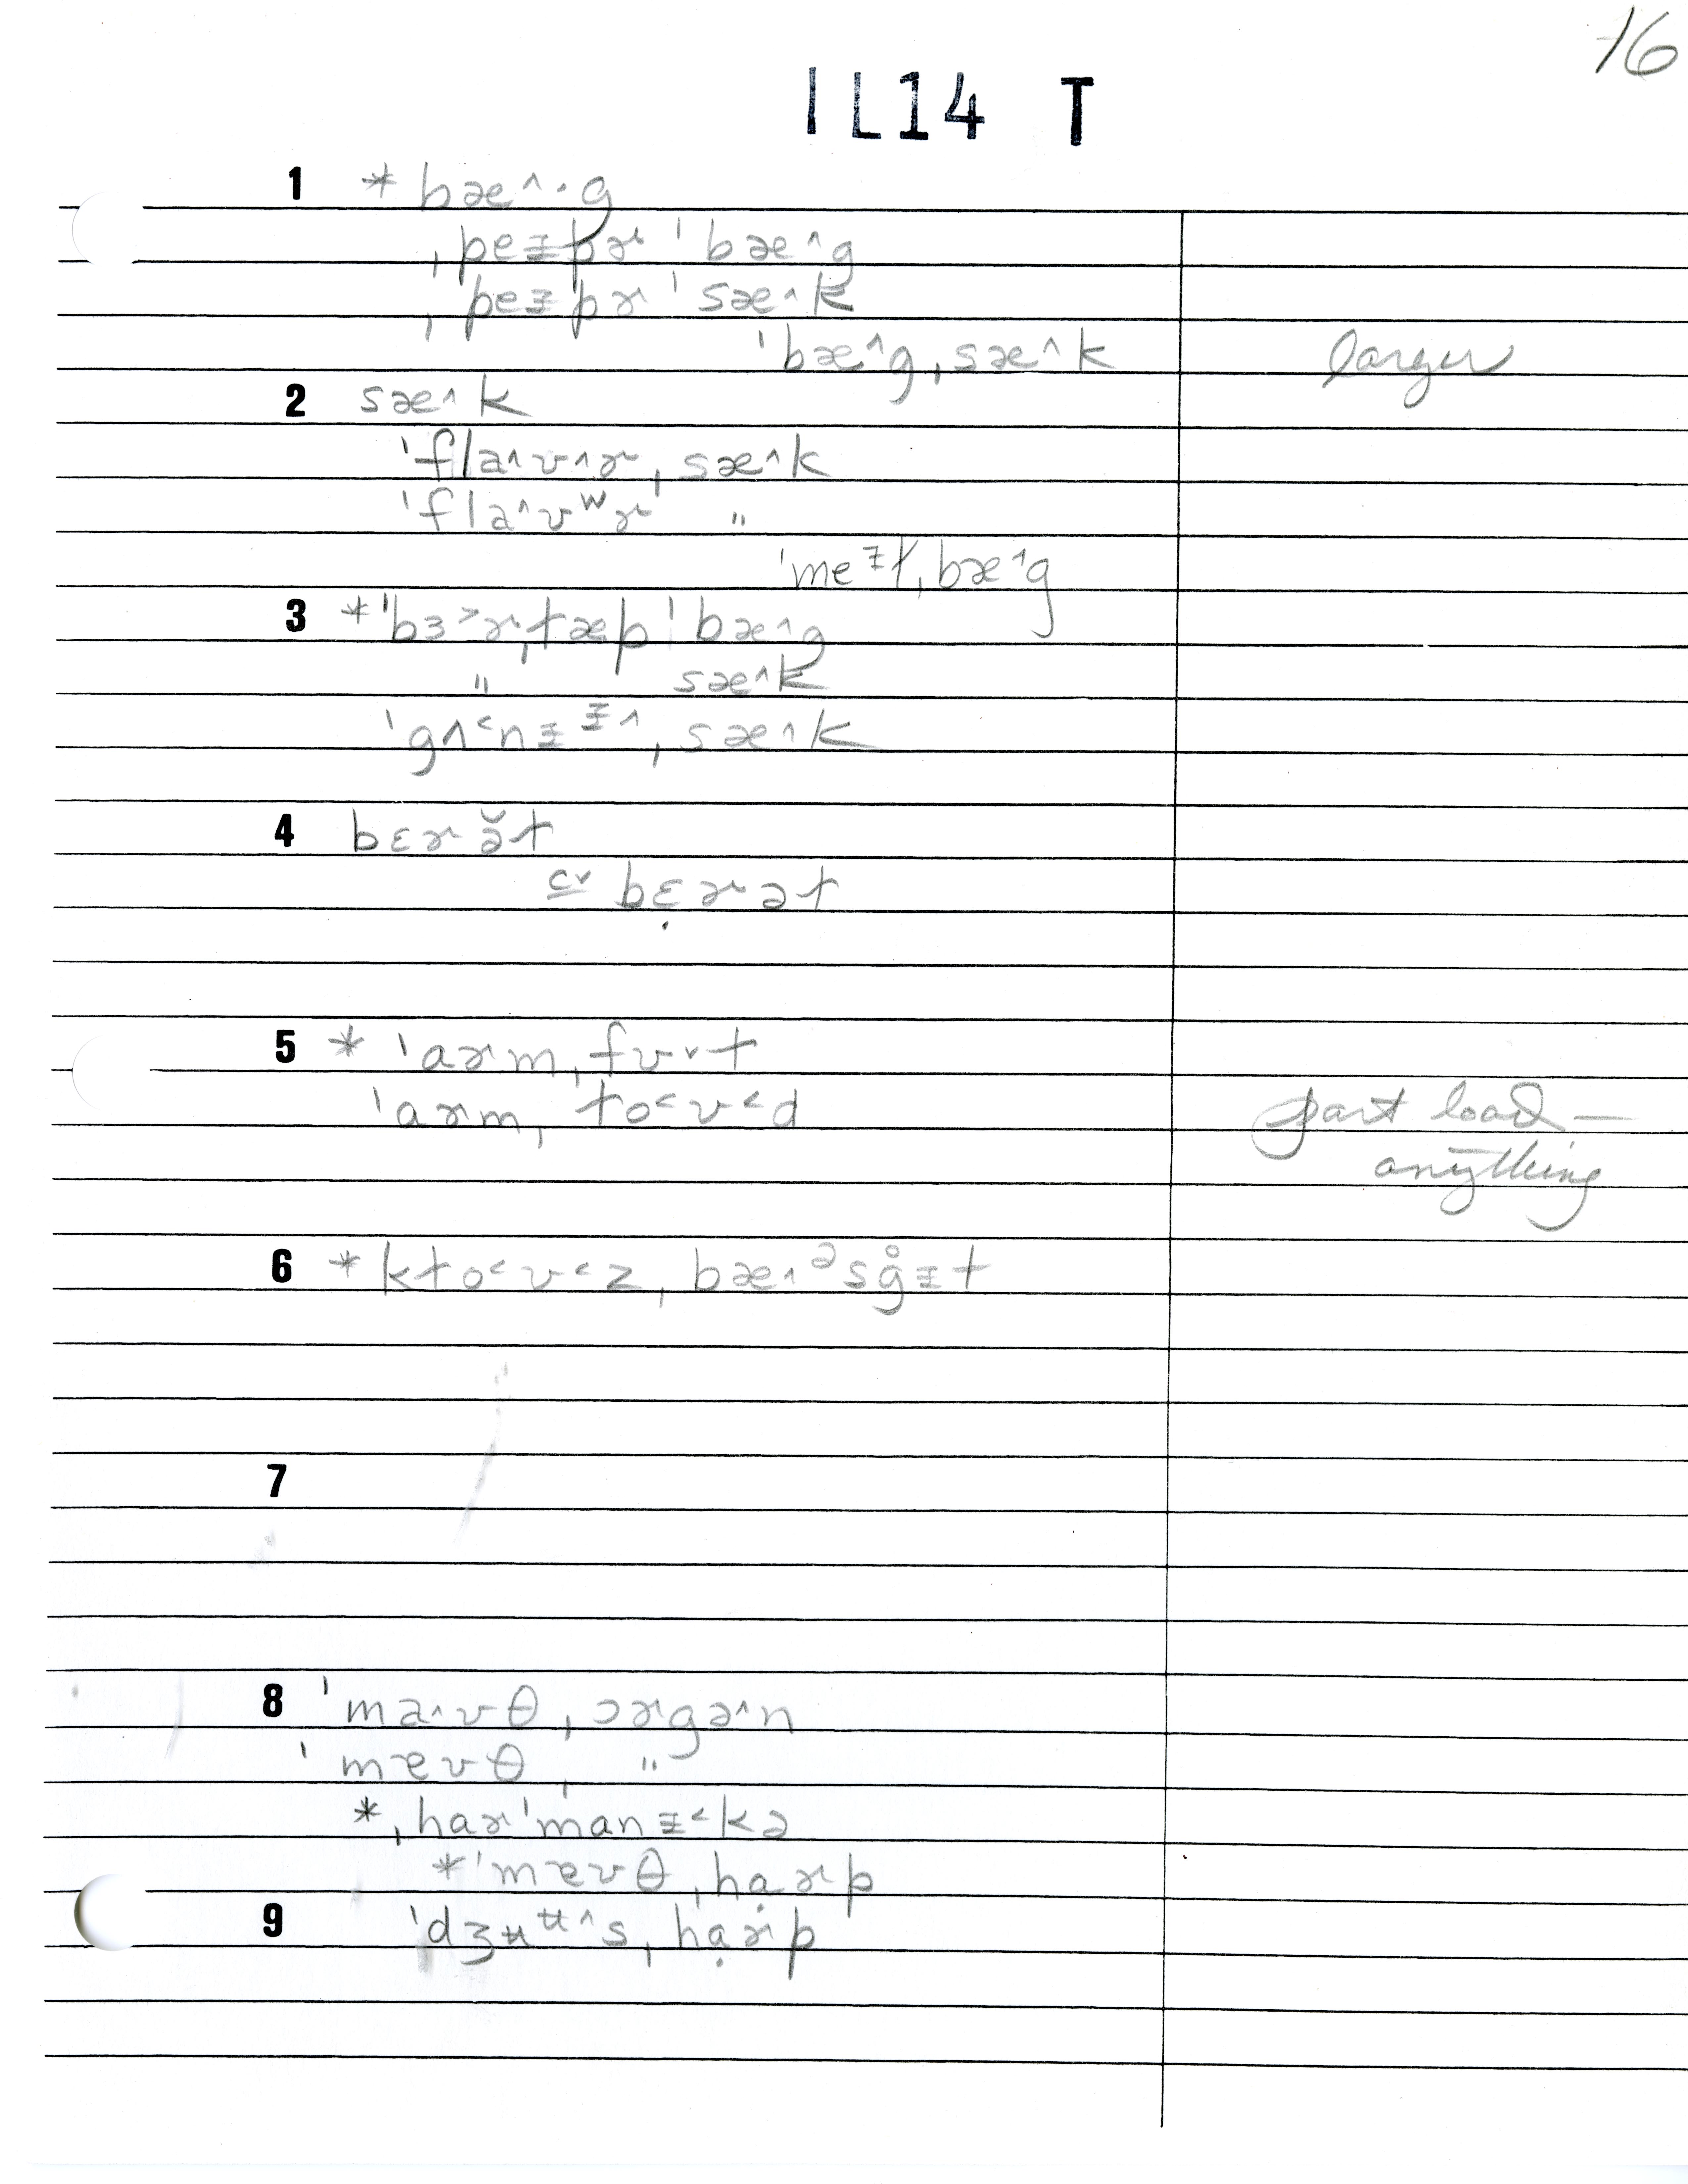 16
IL14 T
1 * bæ^·g
ˌpeᵻpɚ ˈbæ^g
ˌpeᵻpɚ ˈsæ^k
ˈbæ^gˌsæ^k larger
2 sæ^k
ˈfla^ʊ^ɚˌsæ^k
ˈfla^ʊʷɚˌ "
ˈmeᵻɫˌbæ^g
3 *ˈbɜ˃ɚˌɫæpˈbæ^g
" sæ^k
ˈgʌ˂nᵻᵻ^ˌsæ^k
4 bɛɚə̆t
cv bɛ̣ɚət
5 * ˈaɚmˌfʊ˅ɫ
ˈaɚmˌɫo˂ʊ˂d part load —
anything
6 * kɫo˂ʊ˂zˌbæ^ᵊsg̊ᵻt
7
8 ˈma^ʊθˌɔɚgə^n
ˈmæʊθˌ "
*ˌhaɚˈmanᵻ˂kə
*ˈmæʊθˌhạɚp
9 ˈdʒʉᵘ̵^sˌhạɚp